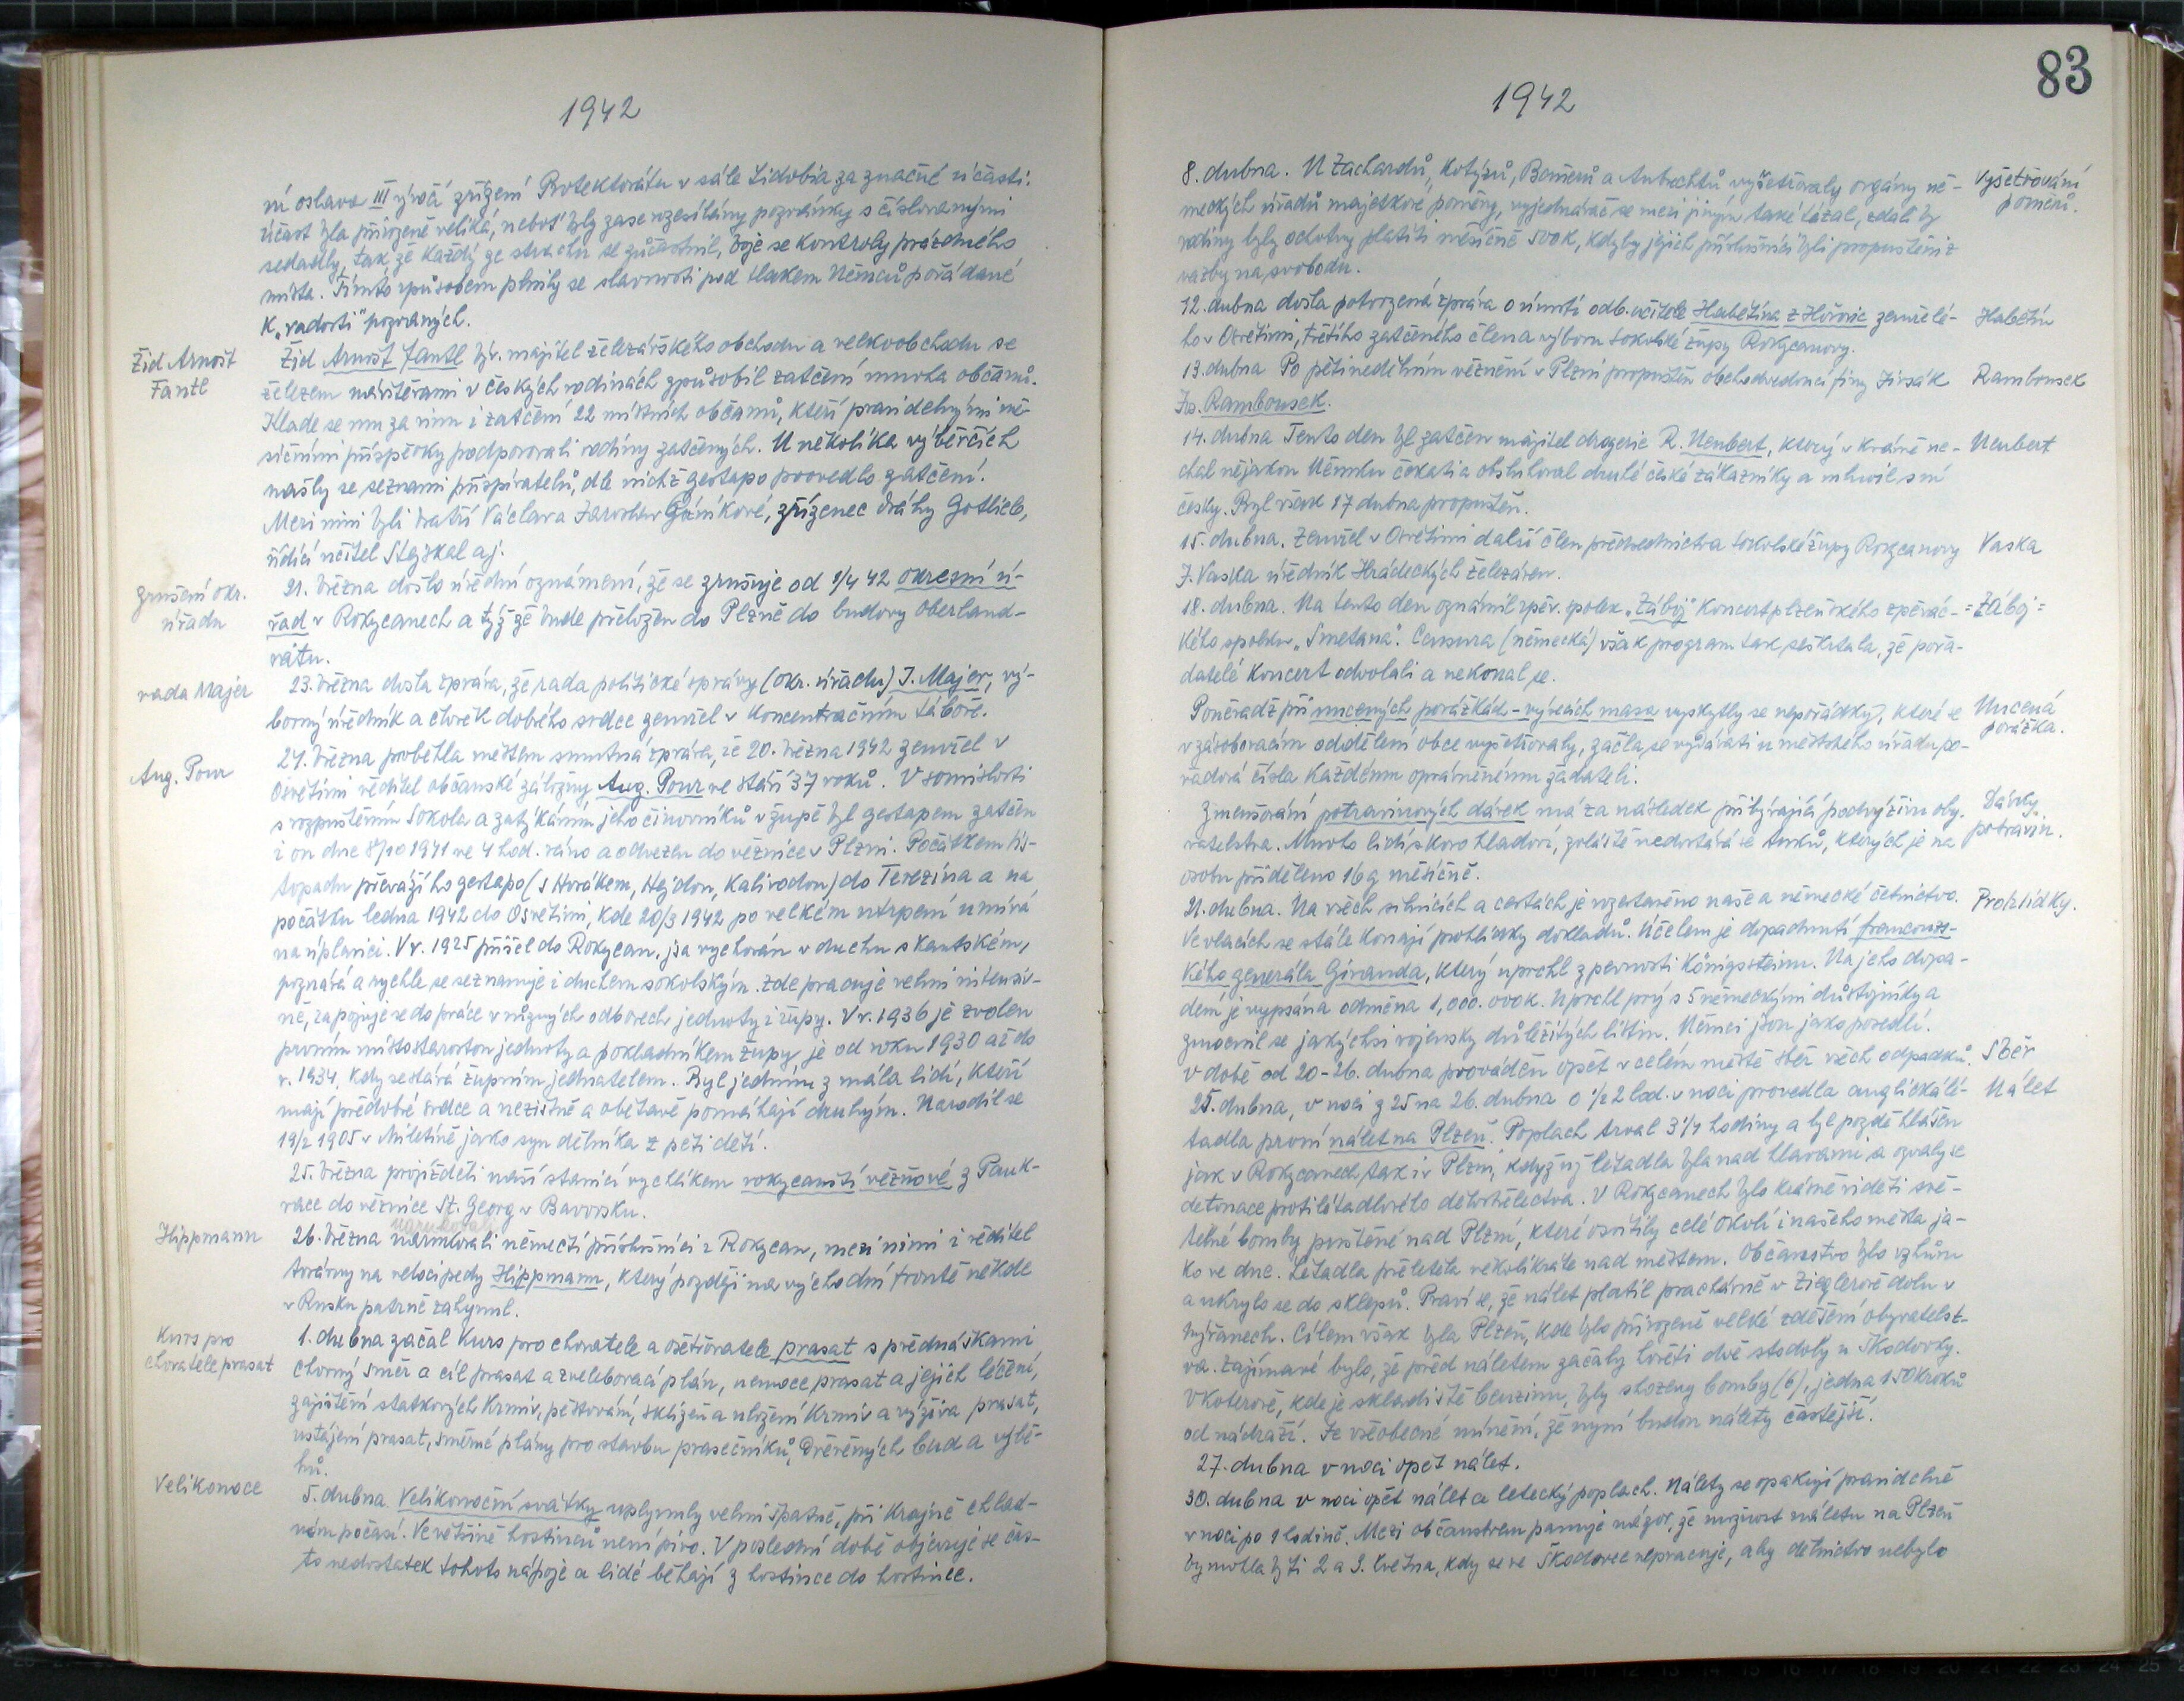 1942
ní oslava III výročí zřízení Protektorátu v sále Lidobia za značné účasti.
Účast byla přirozeně veliká, neboť byly zase rozesílány pozvánky s číslovanými
sedadly, tak, že každý ze strachu se zúčastnil, boje se kontroly prázdného
místa. Tímto způsobem plnily se slavnosti pod tlakem Němců pořádané
k „radosti" pozvaných.
Žid Arnošt
Fantl
Žid Arnošt Fantl býv. majitel železářského obchodu a velkoobchodu se
železem návštěvami v českých rodinách způsobil zatčení mnoha občanů.
Klade se mu za vinu i zatčení 22 místních občanů, kteří pravidelnými mě-
síčními příspěvky podporovali rodiny zatčených. U několika výběrčích
našly se seznami přispívatelů, dle nichž gestapo provedlo zatčení.
Mezi nimi byli bratří Václav a Jaroslav, zřízenec dráhy Gottlieb,
řídící učitel Stejskal aj.
zrušení okr.
úřadu
21. března došlo úřední oznámení, že se zrušuje od 1/4 42 okresní ú-
řad v Rokycanech a týž že bude přeložen do Plzně do budovy Oberland-
rátu.
rada Majer
23. března došla zpráva, že rada politické správy (okr. úřadu) J. Majer, vý-
borný úředník a člověk dobrého srdce zemřel v koncentračním táboře.
Aug. Pour
24. března proběhla městem smutná zpráva, že 20. března 1942 zemřel v
Osvětimi ředitel občanské záložny Aug. Pour ve stáří 37 roků. V souvislosti
s rozpuštěním Sokola a zatýkáním jeho činovníků v župě byl gestapem zatčen
i on dne 8/10 1941 ve 4 hod. ráno a odvezen do věznice v Plzni. Počátkem lis-
topadu převáží ho gestapo (s Horákem, Hejdou, Kalivodou) do Terezína a na
počátku ledna 1942 do Osvětimi, kde 20/3 1942 po velkém utrpení umírá
na úplavici. V r. 1925 přišel do Rokycan, jsa vychován v duchu skautském,
poznává a rychle se seznamuje i duchem sokolským. Zde pracuje velmi intensiv-
ně, zapojuje se do práce v různých odborech jednoty i župy. V r. 1936 je zvolen
prvním místostarostou jednoty a pokladníkem župy je od roku 1930 až do
r. 1934, kdy se stává župním jednatelem. Byl jedním z mála lidí, kteří
mají předobré srdce a nezištně a obětavě pomáhají druhým. Narodil se
19/2 1905 v Miletíně jako syn dělníka z pěti dětí.
25. března projížděli naší stanicí rychlíkem rokycanští vězňové z Pank-
ráce do věznice St. Georg v Bavorsku.
Hippmann
narukovali
26. března narukovali němečtí příslušníci z Rokycan, mezi nimi i ředitel
továrny na velocipedy Hippmann, který později na východní frontě někde
v Rusku patrně zahynul.
Kurs pro
chovatele prasat
1. dubna začal kurs pro chovatele a ošetřovatele prasat s přednáškami
chovný směr a cíl prasat a zvelebovací plán, nemoce prasat a jejich léčení,
zajištění statkových krmiv, pěstování, sklizeň a uložení krmiv a výživa prasat,
ustájení prasat, směrné plány pro stavbu prasečníků, dřevěných bud a výbě-
hů.
Velikonoce
5. dubna Velikonoční svátky uplynuly velmi špatně, při krajně chlad-
ném počasí. Ve většině hostinců není pivo. V poslední době objevuje se čas-
to nedostatek tohoto nápoje a lidé běhají z hostince do hostince.
83
1942
8. dubna. U Zachardů, Kotýzů, a Aubrechtů vyšetřovaly orgány ně-
meckých úřadů majetkové poměry, vyjednávač se mezi jiným také tázal, zdali by
rodiny byly ochotny platiti měsíčně 500K, kdyby jejich příslušníci byli propuštěni z
vazby na svobodu.
Vyšetřování
poměrů.
12. dubna došla potvrzená zpráva o úmrtí odb. učitele Habětína z Hořovic zemřelé-
ho v Osvětimi, třetího zatčeného člena výboru sokolské župy Rokycanovy.
Habětín
13. dubna Po pětinedělním věznění v Plzni propuštěn obchodvedoucí firmy Jirsák
Jos. Rambousek.
Rambousek
14. dubna Tento den byl zatčen majitel drogerie R. Neubert, který v krámě ne-
chal nějakou Němku čekati a obsluhoval druhé české zákazníky a mluvil s ní
česky. Byl však 17 dubna propuštěn.
Neubert
15. dubna. Zemřel v Osvětimi další člen předsednictva sokolské župy Rokycanovy
J. Vaska úředník Hrádeckých železáren.
Vaska
18. dubna. Na tento den oznámil zpěv. spolek „Záboj" koncert plzeňského zpěvác-
kého spolku „Smetana". Censura (německá) však program tak seškrtala, že pořa-
datelé koncert odvolali a nekonal se.
=Záboj=
Poněvadž při nucených porážkách - výsecích masa vyskytly se nepořádky, které se
v zásobovacím oddělení obce vyšetřovaly, začla se vydávati u městského úřadu po-
řadová čísla každému oprávněnému žadateli.
Nucená
porážka.
Zmenšování potravinových dávek má za následek přibývající podvýživu oby-
vatelstva. Mnoho lidí skoro hladoví, zvláště nedostává se tuků, kterých je na
osobu přiděleno 16g měsíčně.
Dávky
potravin.
21. dubna. Na všech silnicích a cestách je rozestavěno naše a německé četnictvo.
Ve vlacích se stále konají prohlídky dokladů. Účelem je dopadnutí francouzs-
kého generála Girauda, který uprchl z pevnosti Königsteinu. Na jeho dopa-
dení je vypsána odměna 1,000.000K. Uprchl prý s 5 německými důstojníky a
zmocnil se jakýchsi vojensky důležitých listin. Němci jsou jako posedlí.
Prohlídky.
V době od 20-26. dubna prováděn opět v celém městě sběr všech odpadků.
Sběr
25. dubna, v noci z 25 na 26. dubna o 1/2 2 hod. v noci provedla anglická lé-
tadla první nálet na Plzeň. Poplach trval 3 1/4 hodiny a byl pozdě hlášen
jak v Rokycanech tak i v Plzni, když už létadla byla nad hlavami a ozvaly se
detonace protiletadlového dělostřelectva. V Rokycanech bylo krásně viděti svě-
telné bomby puštěné nad Plzní, které osvítily celé okolí i našeho města ja-
ko ve dne. Létadla přeletěla několikráte nad městem. Občanstvo bylo vzhůru
a ukrylo se do sklepů. Praví se, že nálet platil prachárně v Zieglerově dolu v
Nýřanech. Cílem však byla Plzeň, kde bylo přirozeně veliké zděšení obyvatelst-
va. Zajímavé bylo, že před náletem začaly hořeti dvě stodoly u Škodovky.
V Koterově, kde je skladiště benzinu, byly shozeny bomby (6), jedna 150 kroků
od nádraží. Je všeobecné mínění, že nyní budou nálety častější.
Nálet
27. dubna v noci opět nálet.
30. dubna v noci opět nálet a letecký poplach. Nálety se opakují pravidelně
v noci po 1 hodině. Mezi občanstvem panuje názor, že možnost náletu na Plzeň
by mohla býti 2 a 3. května, kdy se ve Škodovce nepracuje, aby dělnictvo nebylo